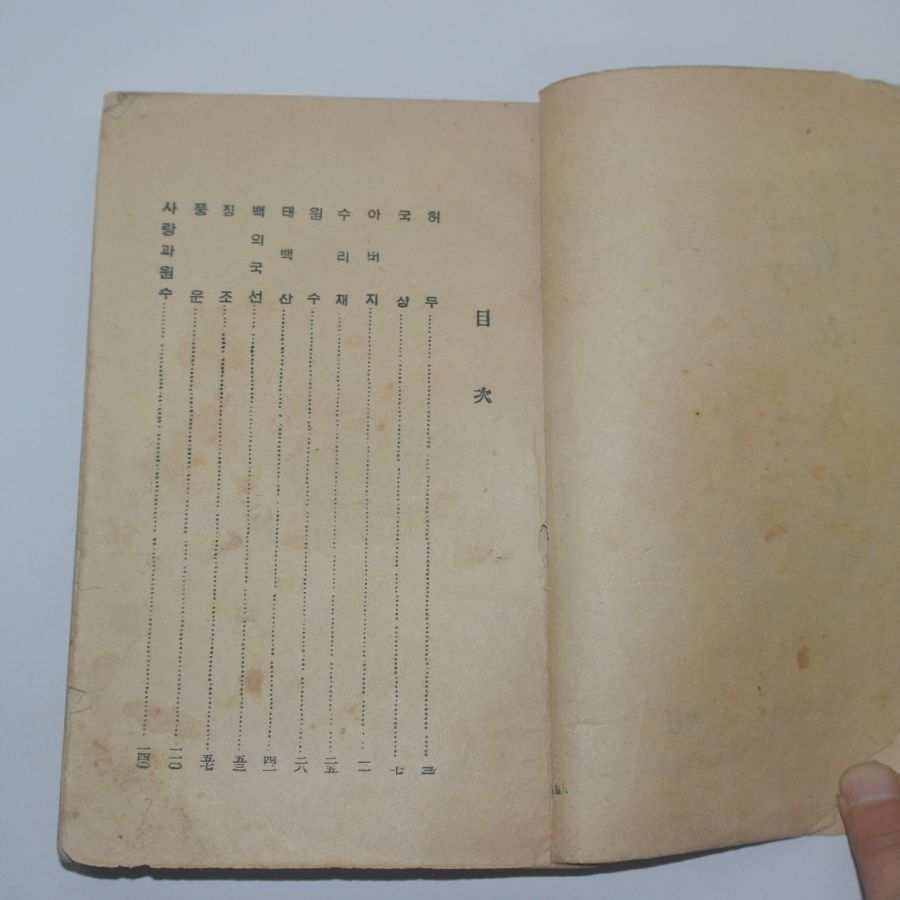 目次
허무 三
국상 七
아버지 一一
수리재 二五
원수 二八
태백산 四一
백의국선 五三
징조 五七
풍운 一一〇
사랑과원수 一四〇